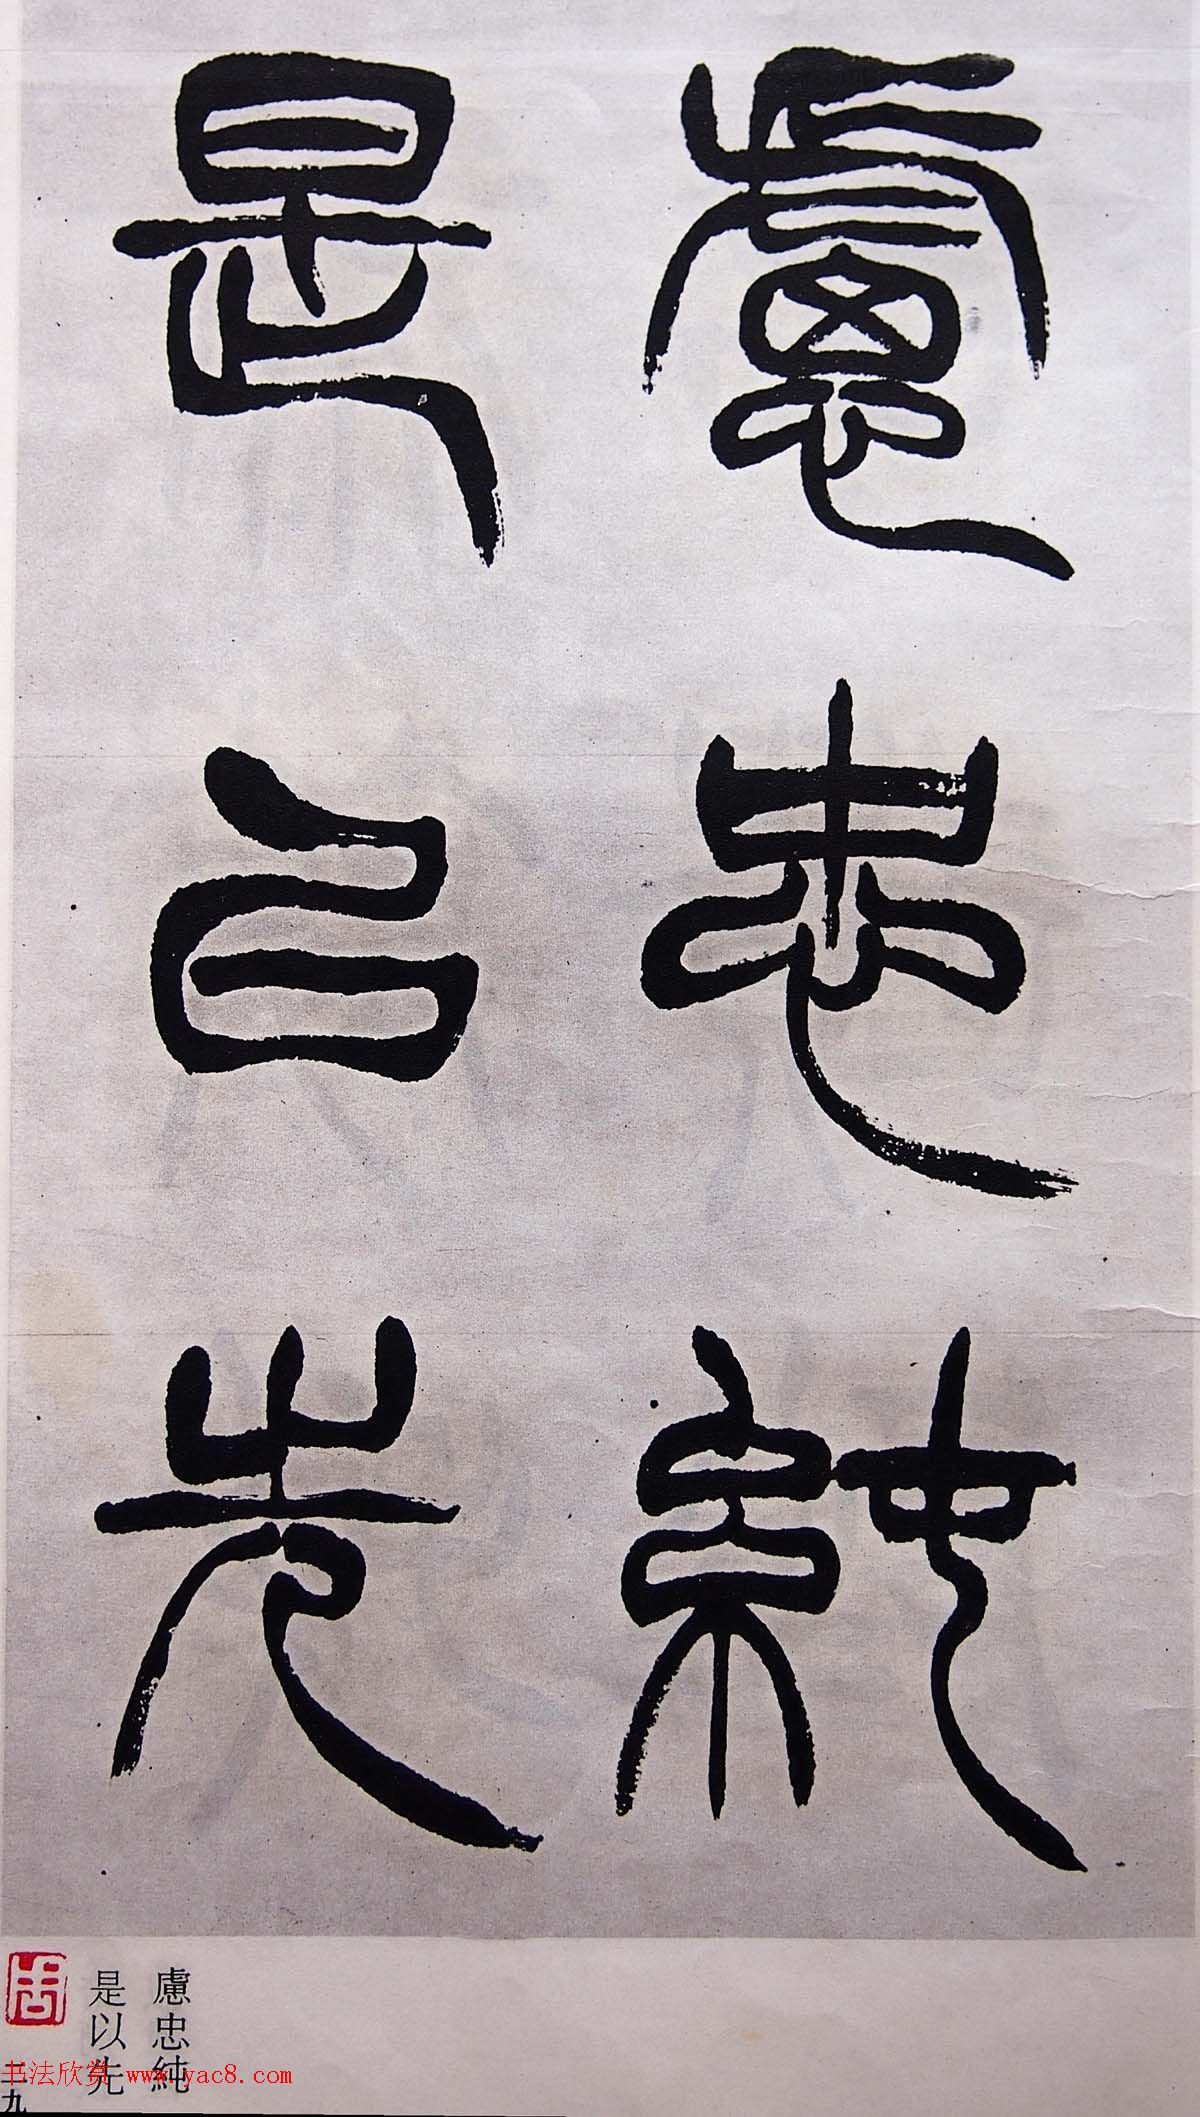 慮忠純
是以先
慮忠純
是以先
书法欣赏 www.yac8.com
二九